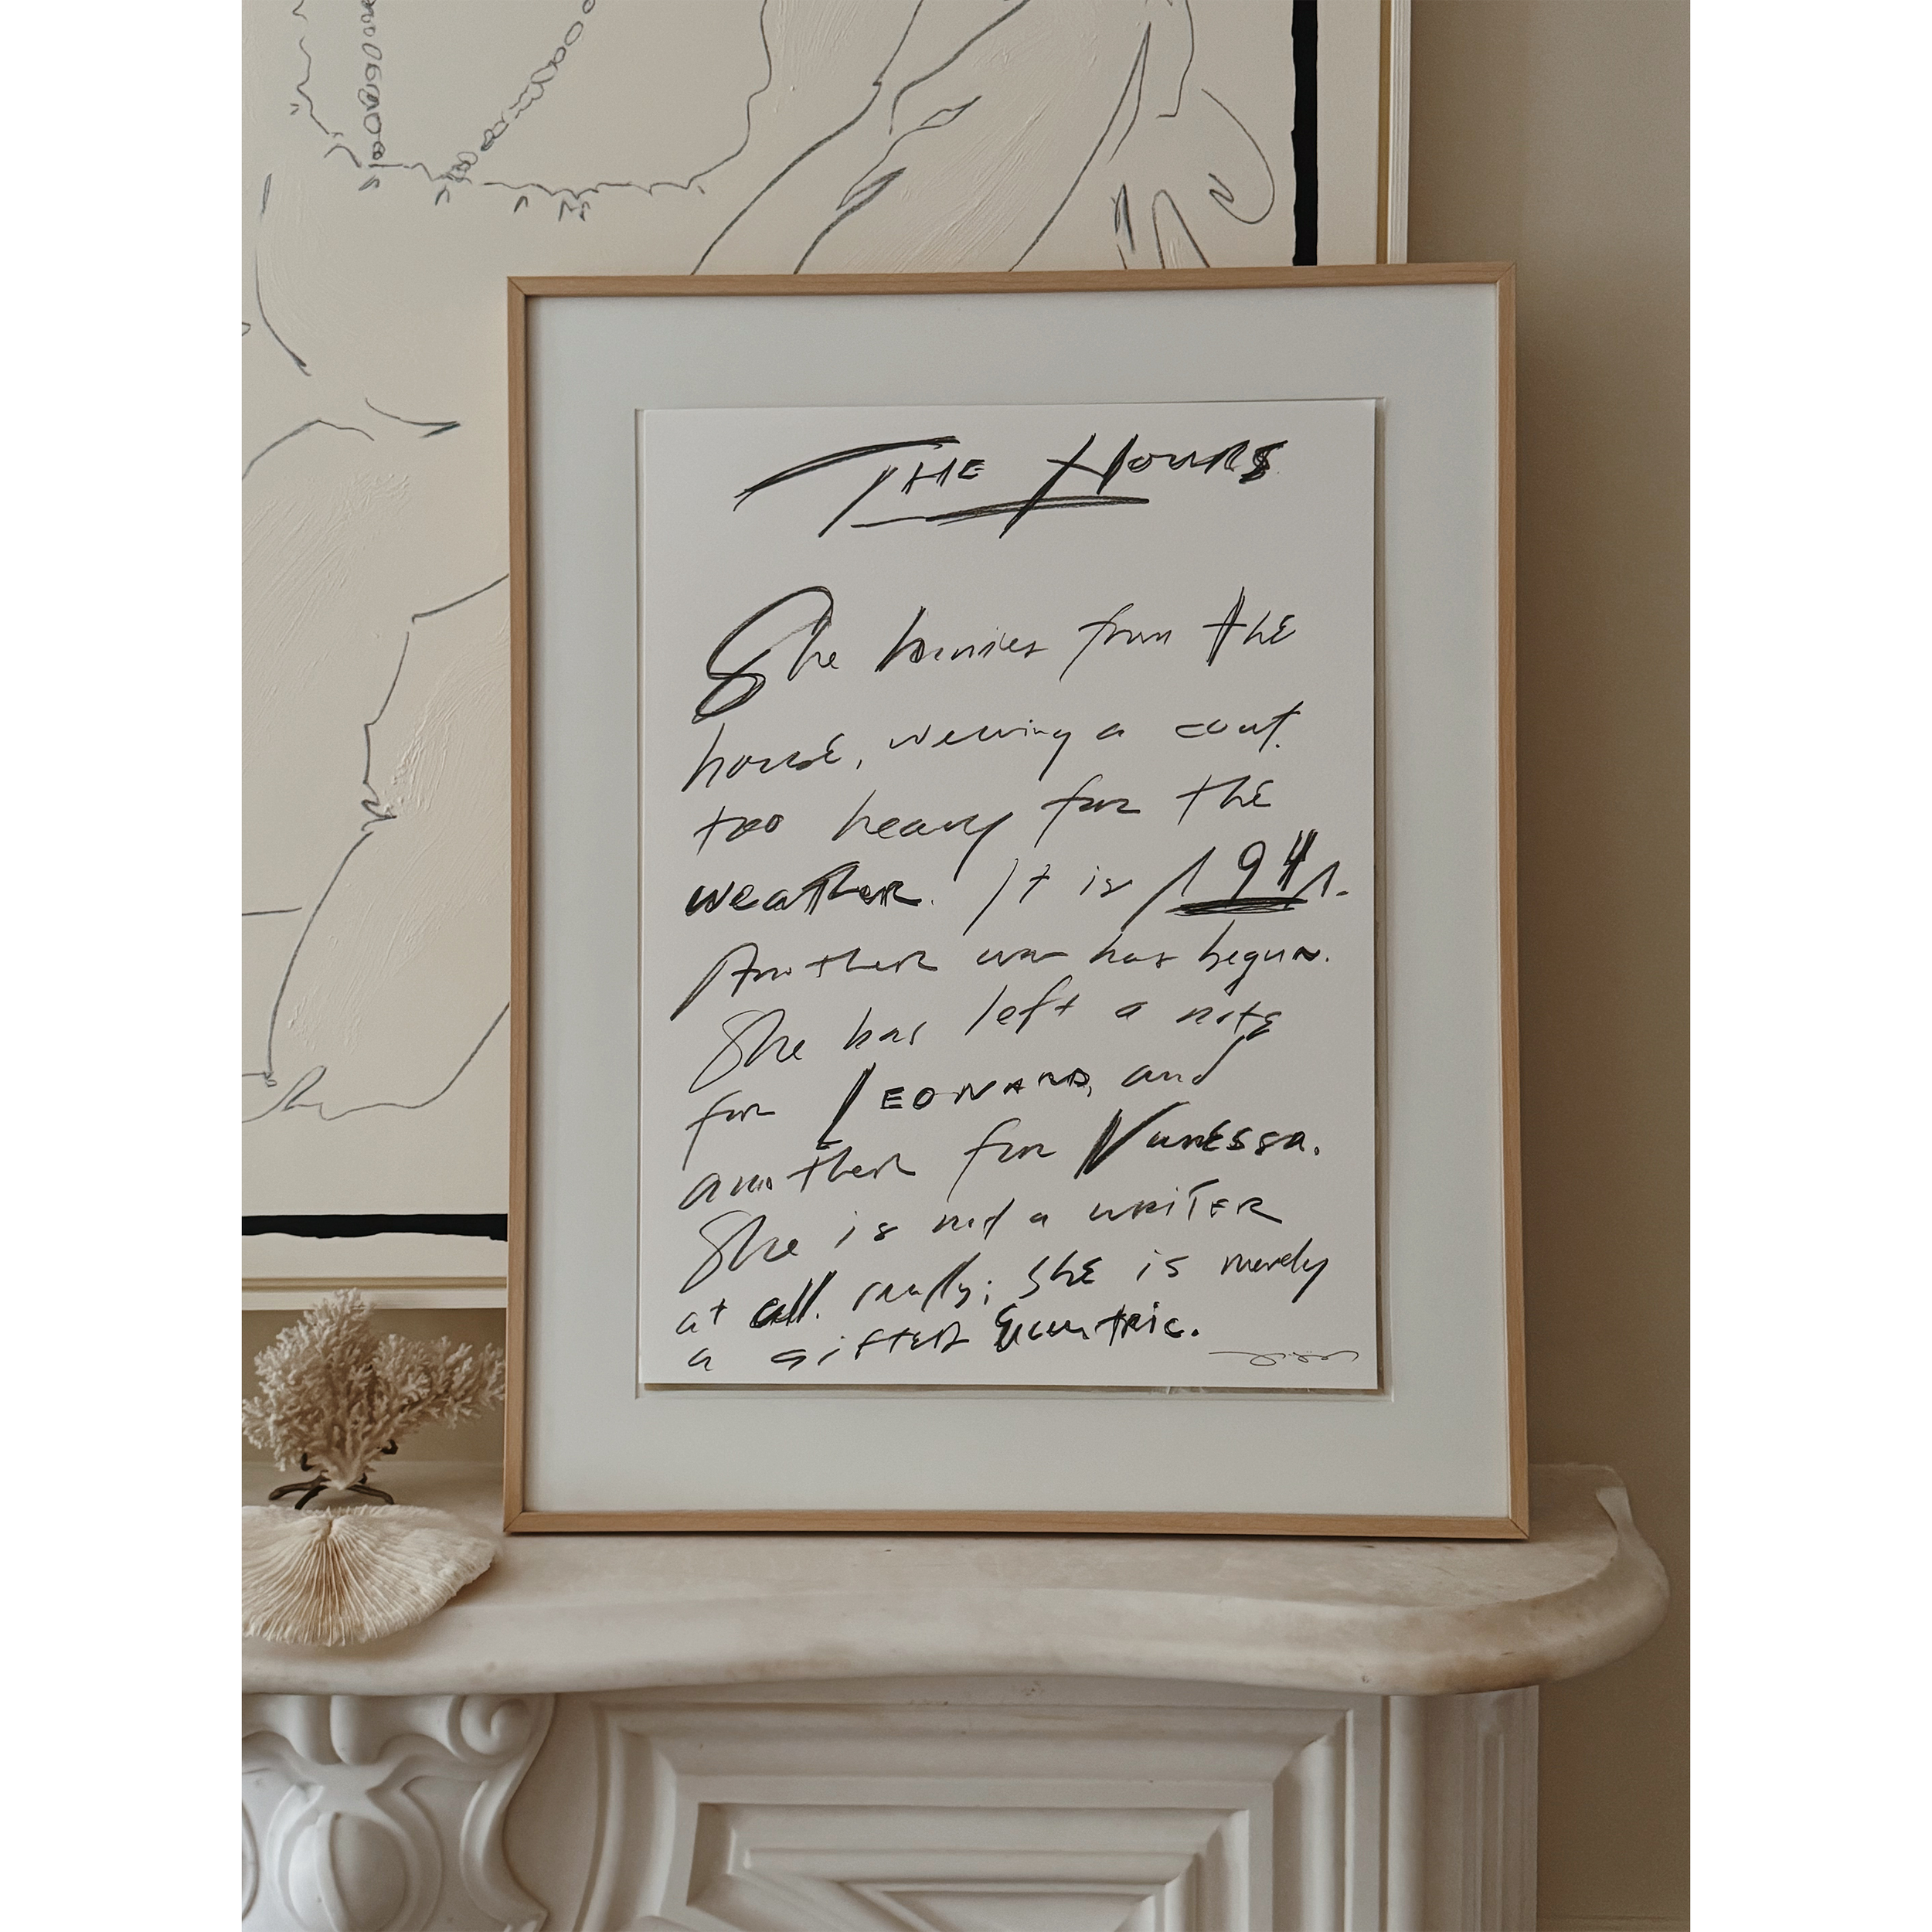 THE HOURS
She hurries from the
house, wearing a coat
too heavy for the
weather. It is 1941.
Another war has begun.
She has left a note
for LEONARD, and
another for Vanessa.
She is not a writer
at all, really; she is merely
a gifted eccentric.